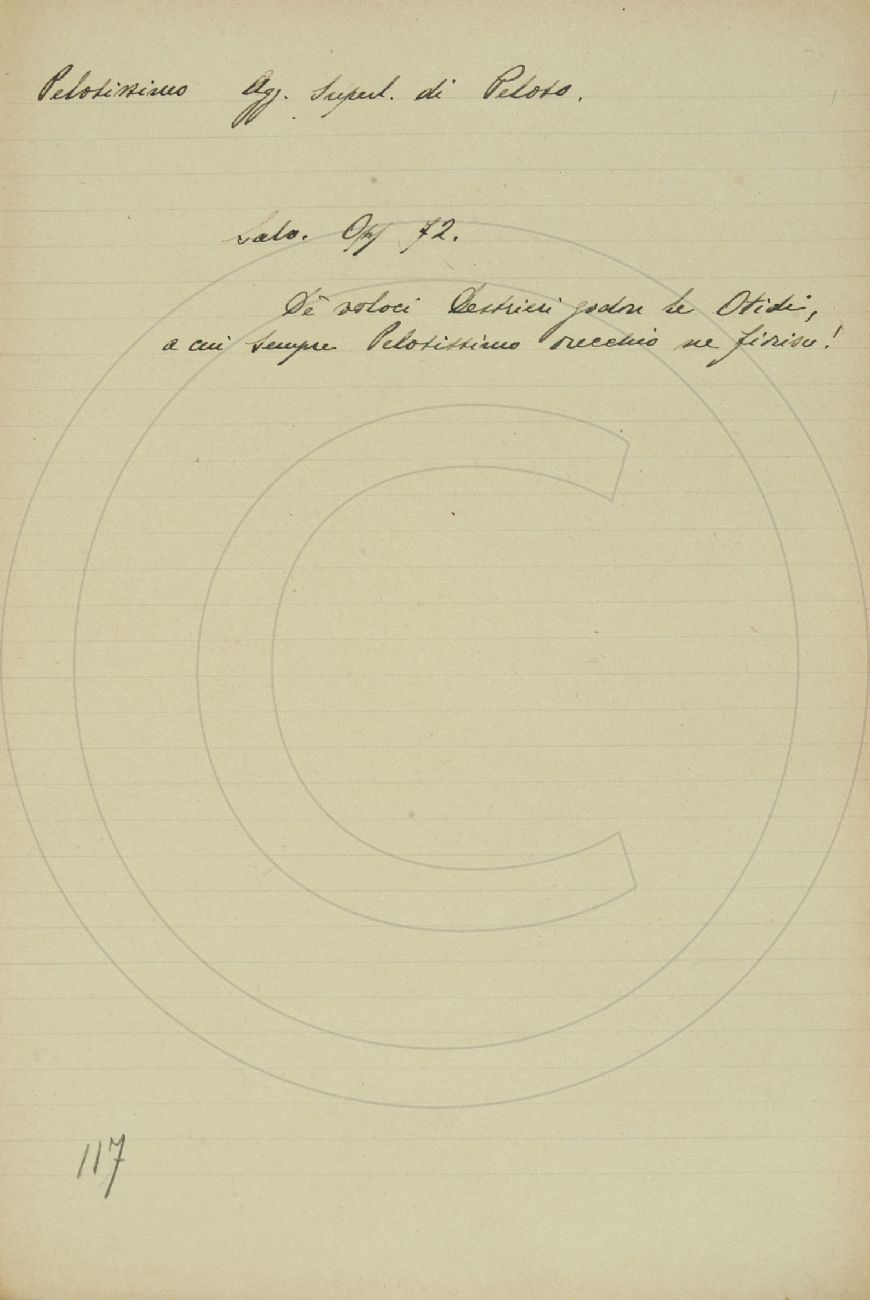 Pelosissimo Agg. Superl. di Peloso.
Salv. Opp 72.
De' veloci Destrieri godon le Otidi,
a cui sempre Pelosissimo orecchio ne fiorisce!
117